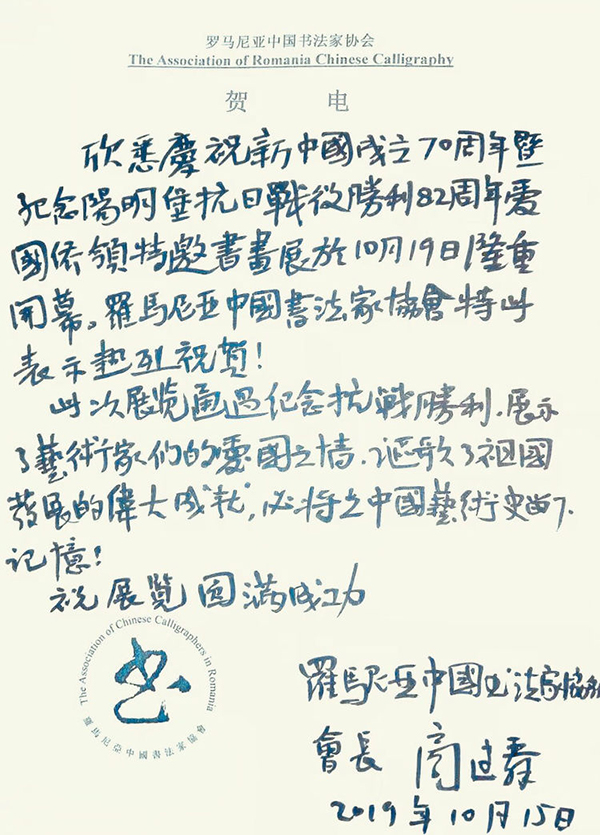 罗马尼亚中国书法家协会
The Association of Romania Chinese Calligraphy
贺 电
欣悉慶祝新中國成立70周年暨
纪念陽明堡抗日戰役勝利82周年爱
國侨領特邀書畫展於10月19日隆重
開幕。羅馬尼亚中國書法家協會特此
表示热烈祝賀!
此次展览通過纪念抗戰勝利、展示
了藝術家们的愛國之情、讴歌了祖國
發展的偉大成就,必将在中國藝術史留下
记憶!
祝展览圆满成功
The Association of Chinese Calligraphers in Romania
書
羅瑪尼亞中國書法家協會
羅馬尼亚中國书法家協會
會長
2019年10月15日